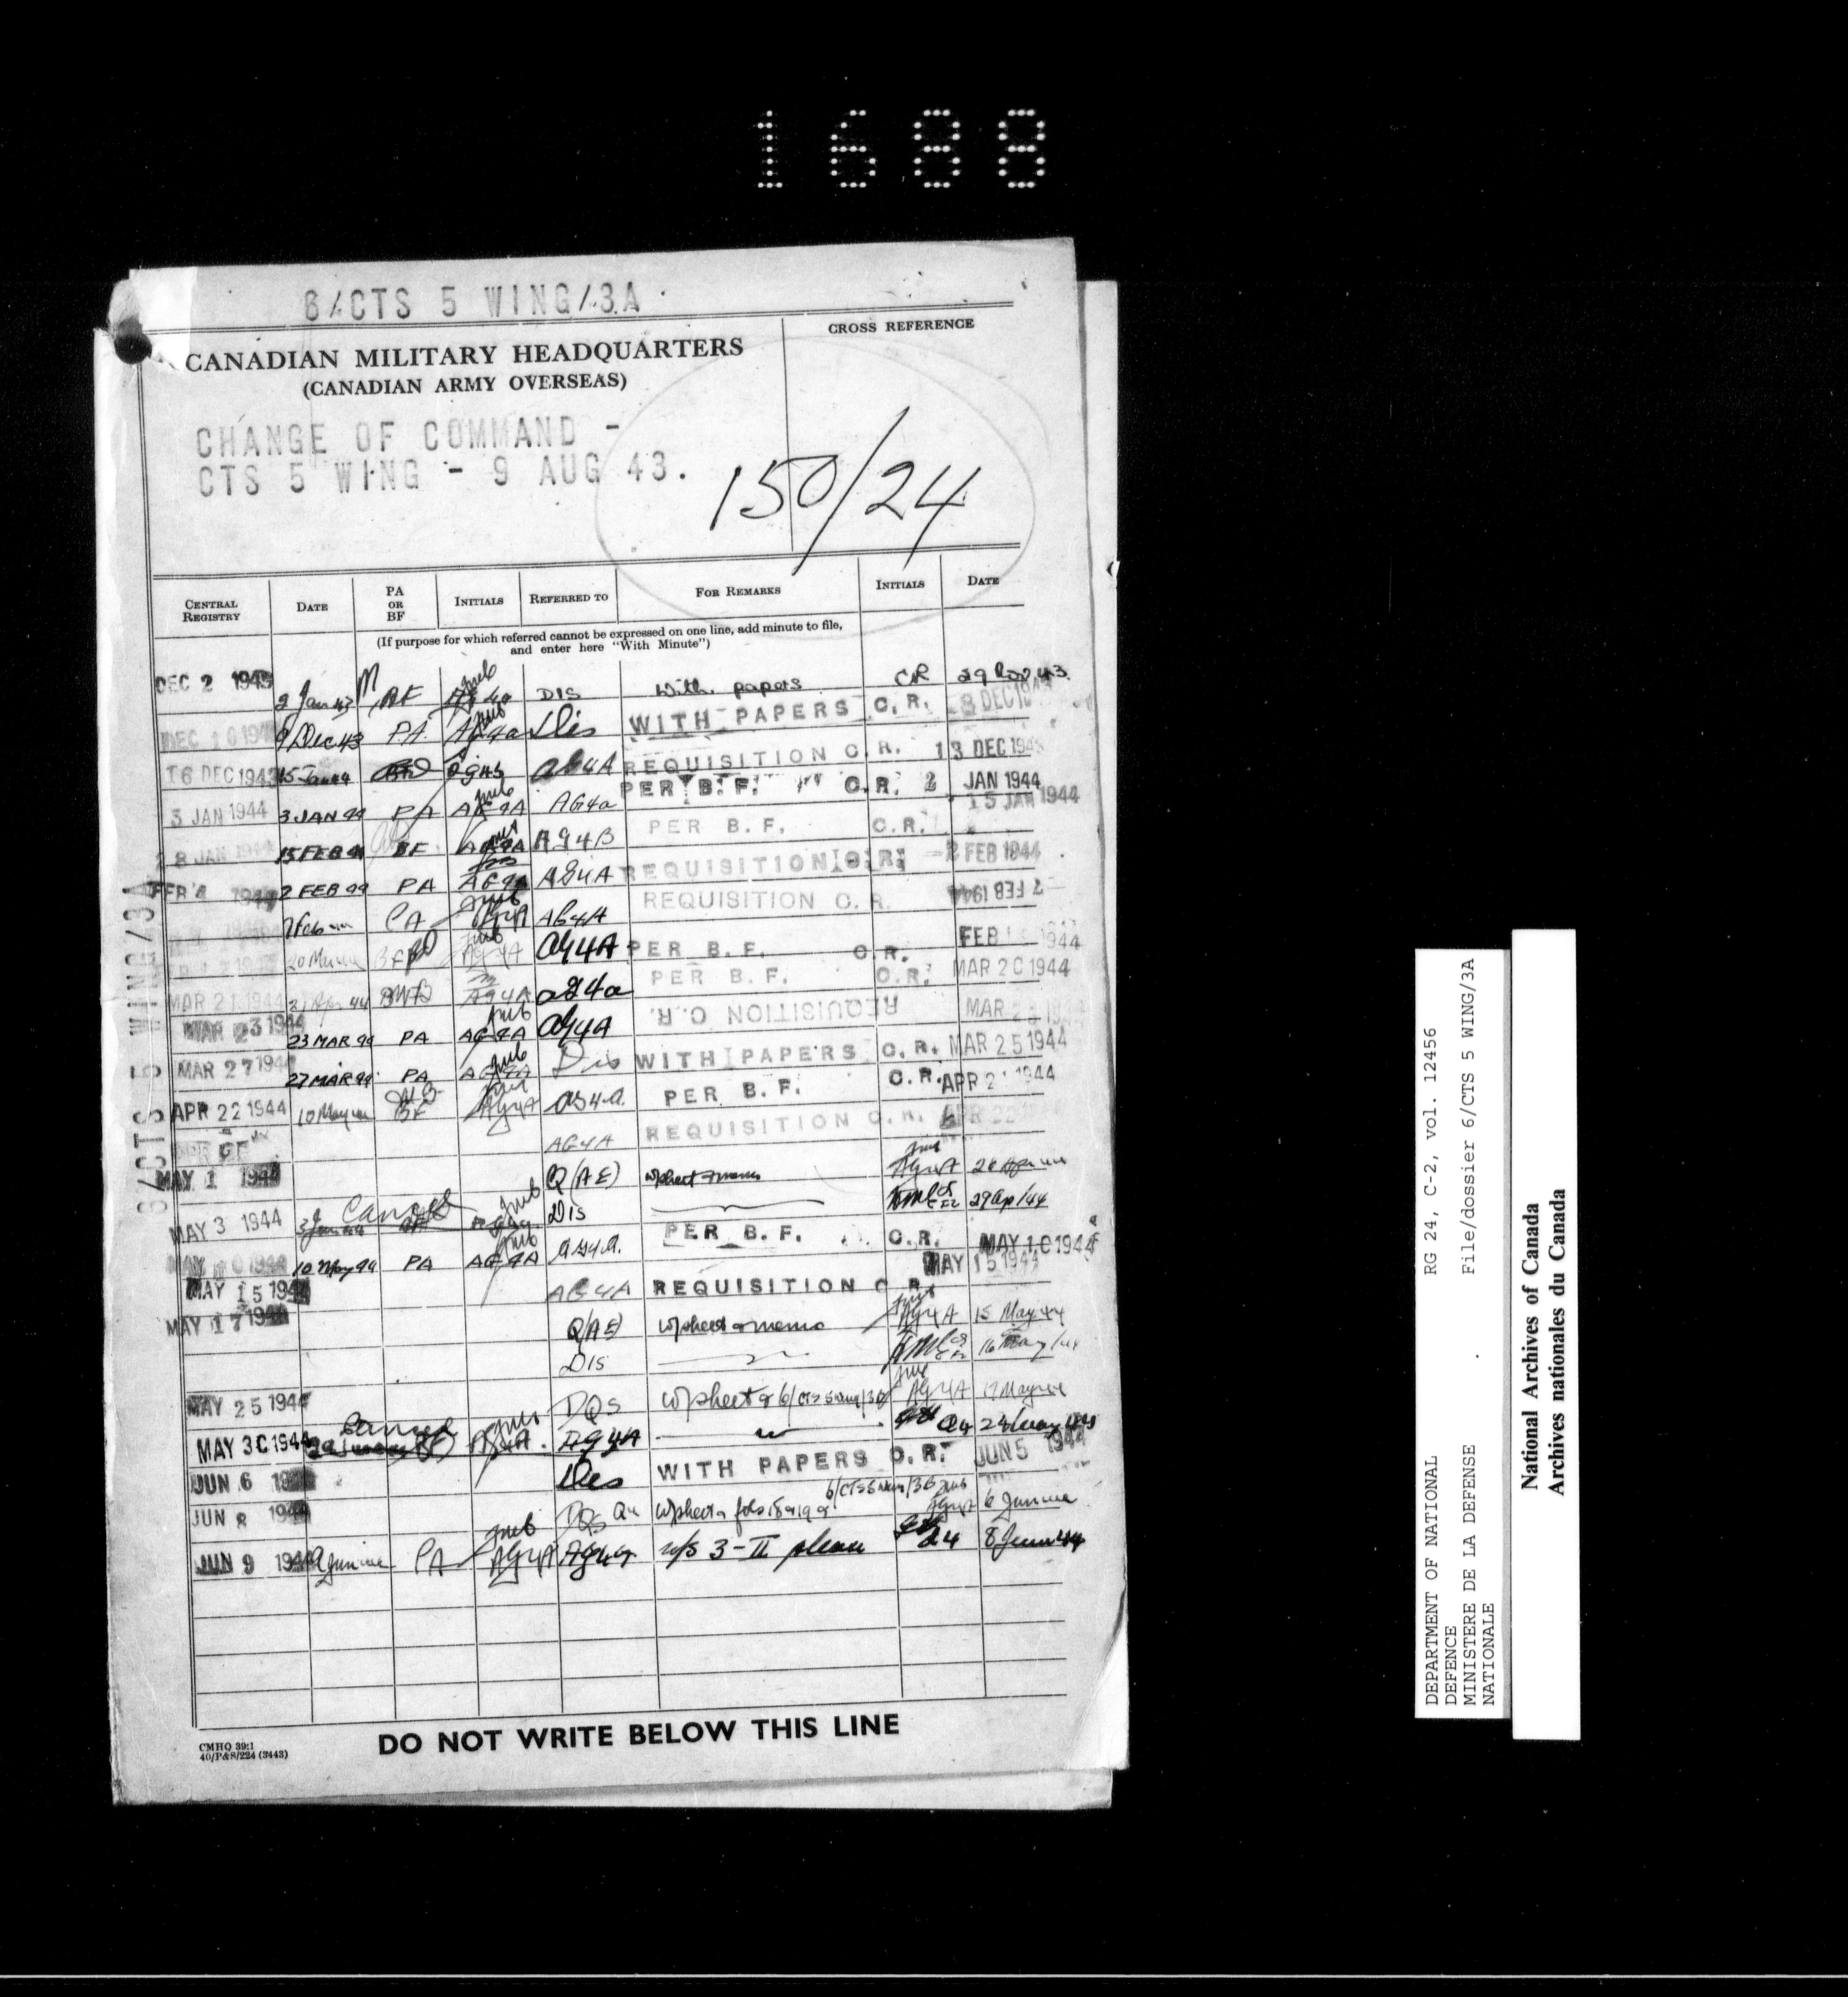 1688
6/CTS 5 WING/3A
CANADIAN MILITARY HEADQUARTERS
(CANADIAN ARMY OVERSEAS)
CROSS REFERENCE
CHANGE OF COMMAND -
CTS 5 WING - 9 AUG 43.
150/24
CENTRAL REGISTRY DATE PA OR BF INITIALS REFERRED TO FOR REMARKS INITIALS DATE
(If purpose for which referred cannot be expressed on one line, add minute to file,
and enter here "With Minute")
DEC 2 1943 2 Jan 43 BF DIS With papers CR 29 Nov 43
DEC 10 194 9 Dec 43 PA AG4a Dis WITH PAPERS C.R. 8 DEC 194
16 DEC 1943 AG4A REQUISITION C.R. 13 DEC 194
3 JAN 1944 3 JAN 44 PA AG4A AG4a PER B.F. C.R. 2 JAN 1944
8 JAN 1944 15 FEB 44 BF AG4A AG4B PER B.F. C.R. 15 JAN 1944
FEB 4 1944 2 FEB 44 PA AG4A AG4A REQUISITION C.R. 2 FEB 1944
7 Feb PA AG4A AG4A REQUISITION C.R. 7 FEB 1944
BF AG4A AG4A PER B.F. C.R. FEB 1944
MAR 21 1944 21 Apr 44 AG4A AG4a PER B.F. C.R. MAR 20 1944
MAR 23 1944 23 MAR 44 PA AG4A AG4A REQUISITION C.R. MAR 23
MAR 27 194 27 MAR 44 PA AG4A Dis WITH PAPERS C.R. MAR 25 1944
APR 22 1944 10 May BF AG4A AG4A PER B.F. C.R. APR 21 1944
AG4A REQUISITION C.R. APR 22
MAY 1 1944 Q(AE) w/sheet + memo AG4A 28 Apr
MAY 3 1944 Cancelled DIS 29 Ap/44
MAY 10 1944 10 May 44 PA AG4A AG4A. PER B.F. C.R. MAY 10 1944
MAY 15 194 AG4A REQUISITION C.R. MAY 15 1944
MAY 17 1944 Q(AE) w/sheet + memo AG4A 15 May 44
DIS 16 May/44
MAY 25 1944 DQS w/sheet & 6/CTS 5 Wing/3B AG4A 17 May 44
MAY 30 1944 Cancel AG4A. AG4A Q4 24 May
JUN 6 Dis WITH PAPERS C.R. JUN 5 1944
JUN 8 194 DQS w/sheet 6/CTS 5 Wing/3B AG4A 6 June
JUN 9 194 9 June PA AG4A AG4a w/s 3-II please Q4 8 June 44
6/CTS 5 WING/3A
DO NOT WRITE BELOW THIS LINE
CMHQ 39:1
40/P&S/224 (3443)
DEPARTMENT OF NATIONAL RG 24, C-2, vol. 12456
DEFENCE
MINISTERE DE LA DEFENSE File/dossier 6/CTS 5 WING/3A
NATIONALE
National Archives of Canada
Archives nationales du Canada